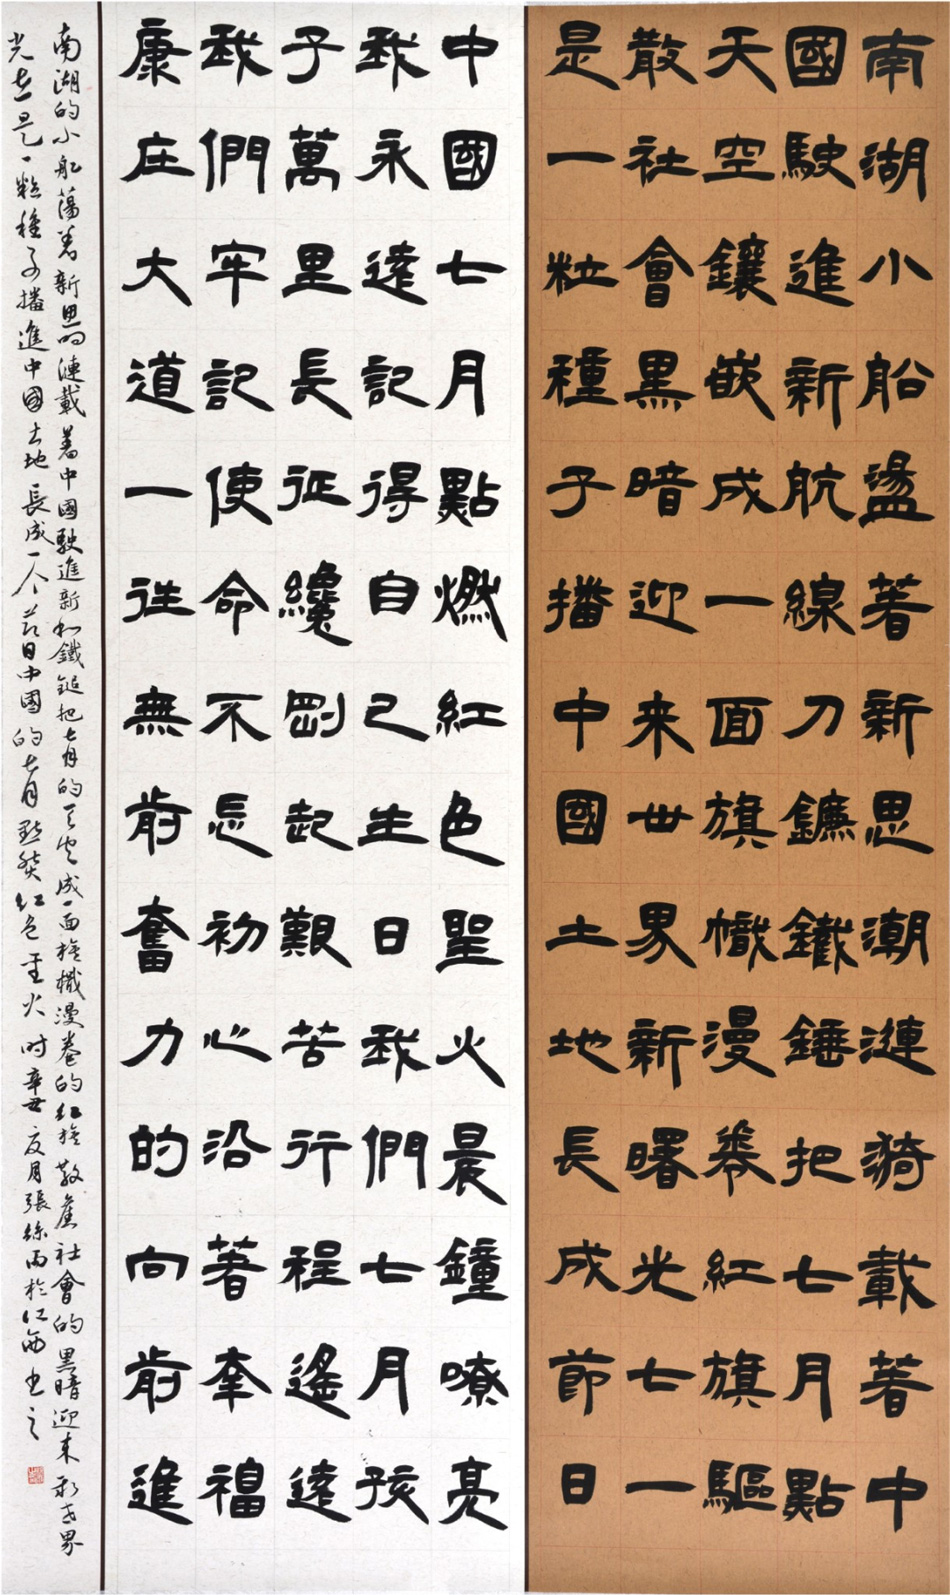 南湖小船盪著新思潮漣漪載著中
國駛進新航線刀鐮鐵錘把七月點
天空鑲嵌成一面旗幟漫卷紅旗驅
散社會黑暗迎来世界新曙光七一
是一粒種子播中國土地長成節日
中國七月點燃紅色聖火晨鐘嘹亮
我永遠記得自己生日我們七月孩
子萬里長征纔剛起艱苦行程遙遠
我們牢記使命不忘初心沿著幸福
康庄大道一往無前奮力的向前進
南湖的小船蕩着新思的漣載着中國駛進新和鐵鎚把七月的天空成一面旗幟漫卷的紅旗散舊社會的黑暗迎来新世界
光七一是一粒種子播進中國土地長成一个节日中國的七月點燃紅色聖火时辛丑夏月張雨於江西書之